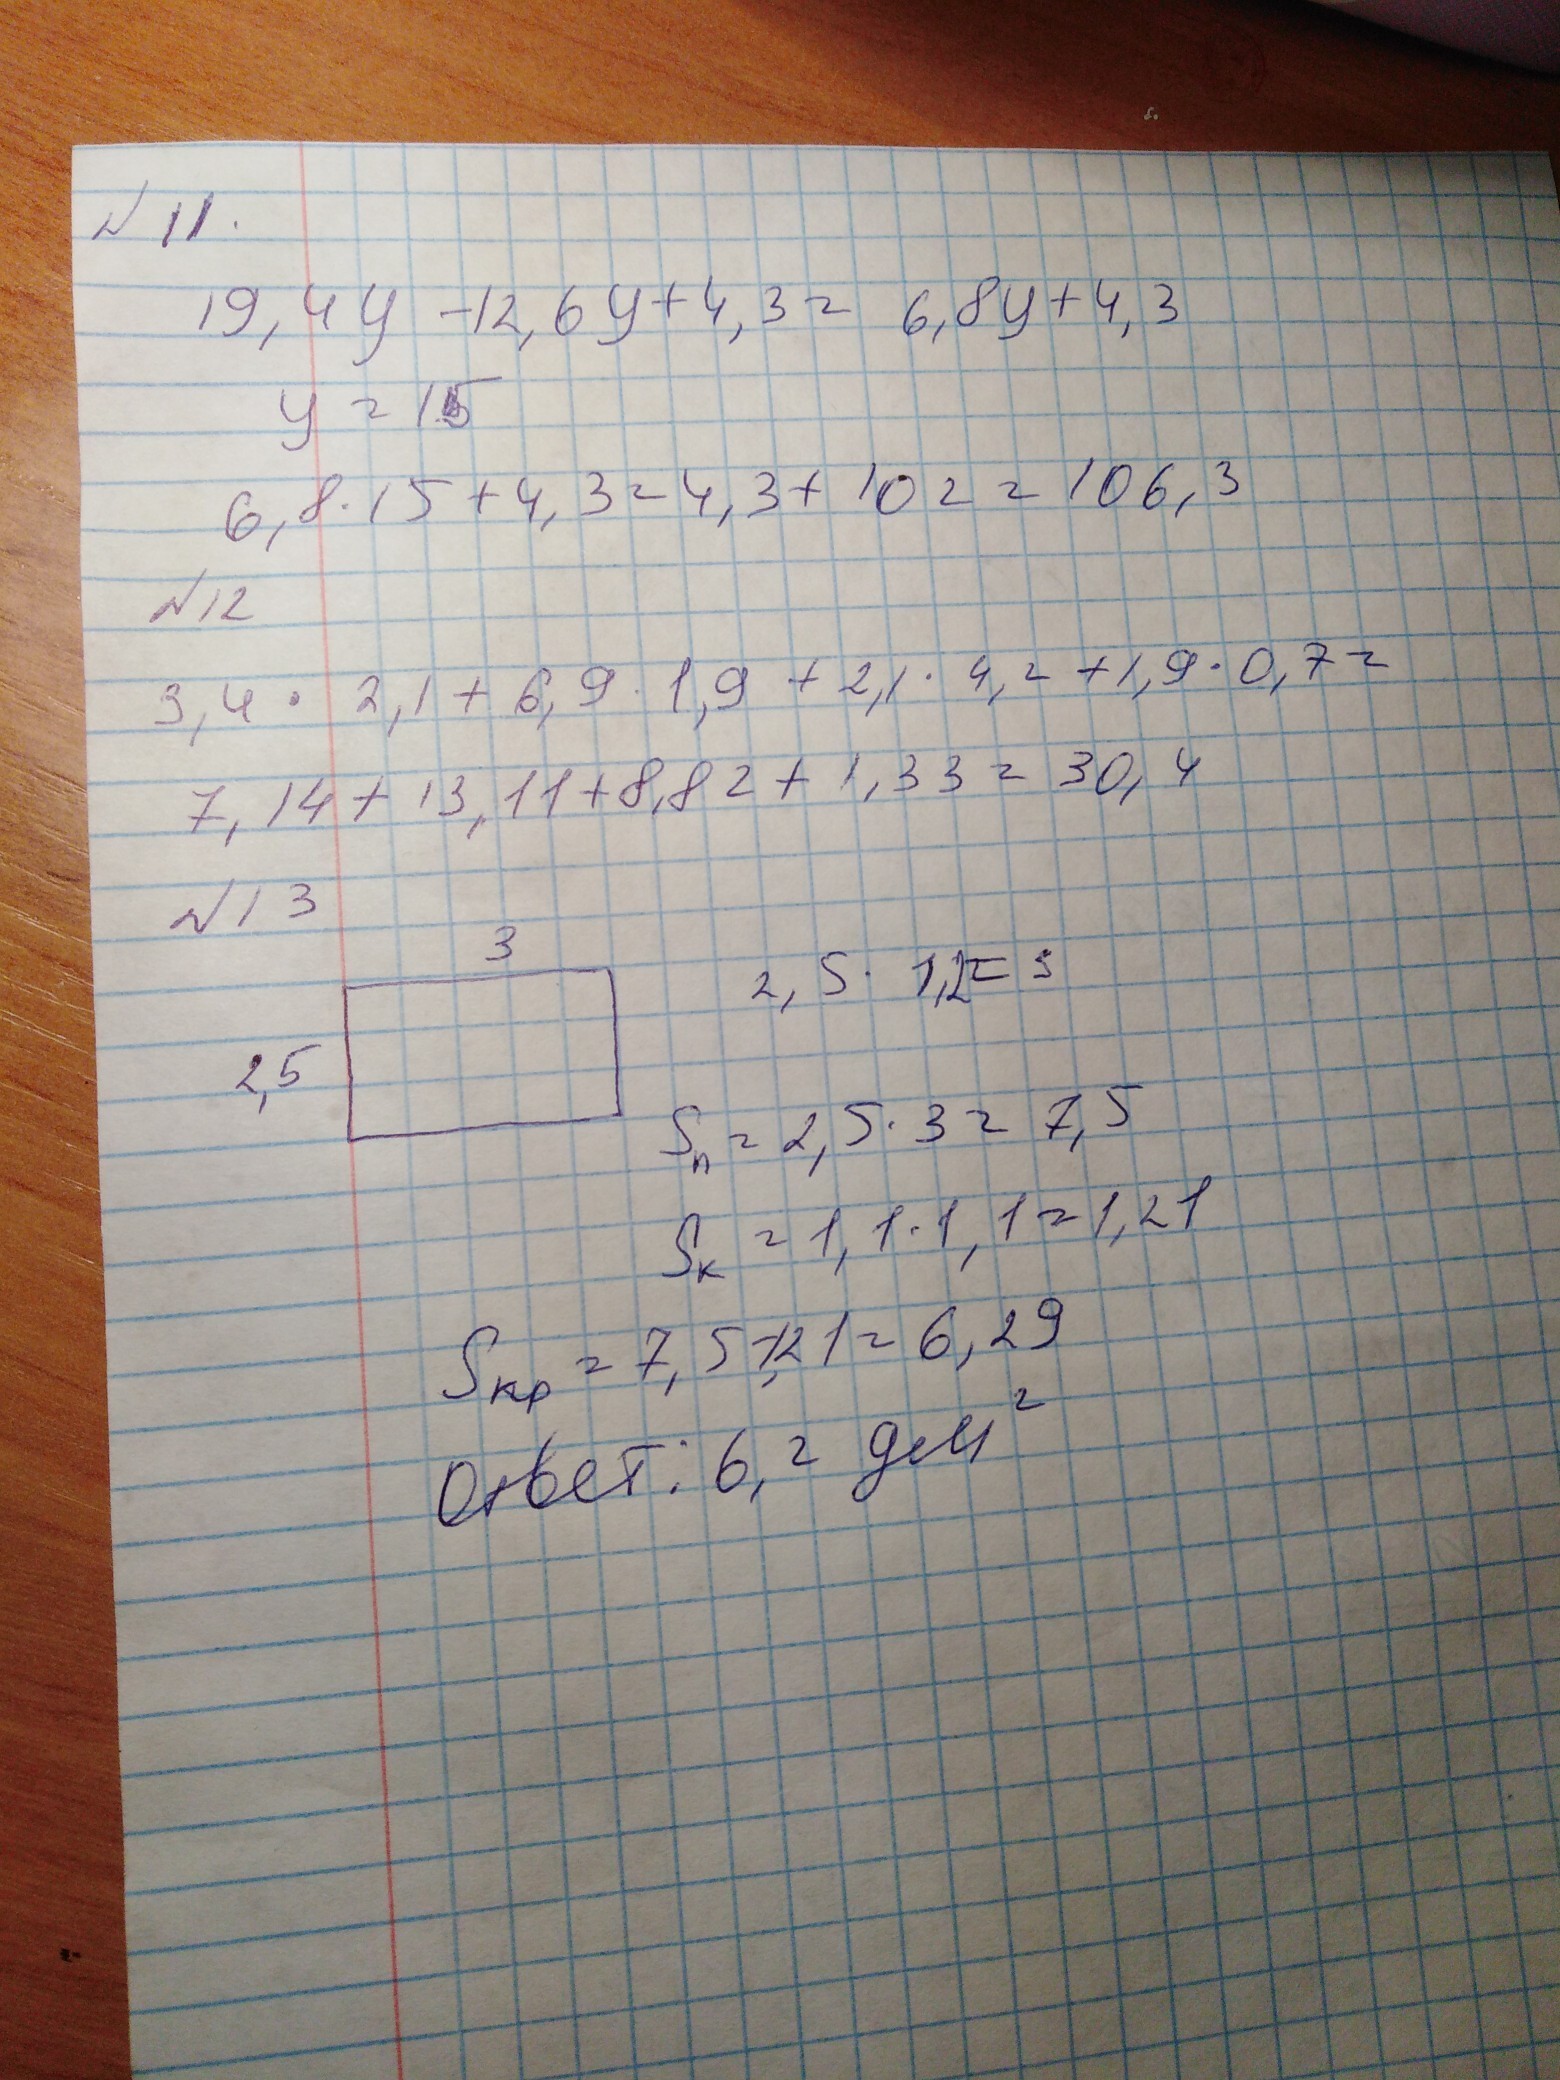 № 11.
19,4y -12,6y+4,3= 6,8y+4,3
y = 15
6,8·15+4,3=4,3+102=106,3
№12
3,4· 2,1+6,9·1,9+2,1·4,2+1,9·0,7=
7,14+13,11+8,82+1,33=30,4
№13
3
2,5· 1,2=3
2,5
Sп=2,5·3=7,5
Sк=1,1·1,1=1,21
Sкр=7,5-1,21=6,29
Ответ: 6,2 дм²